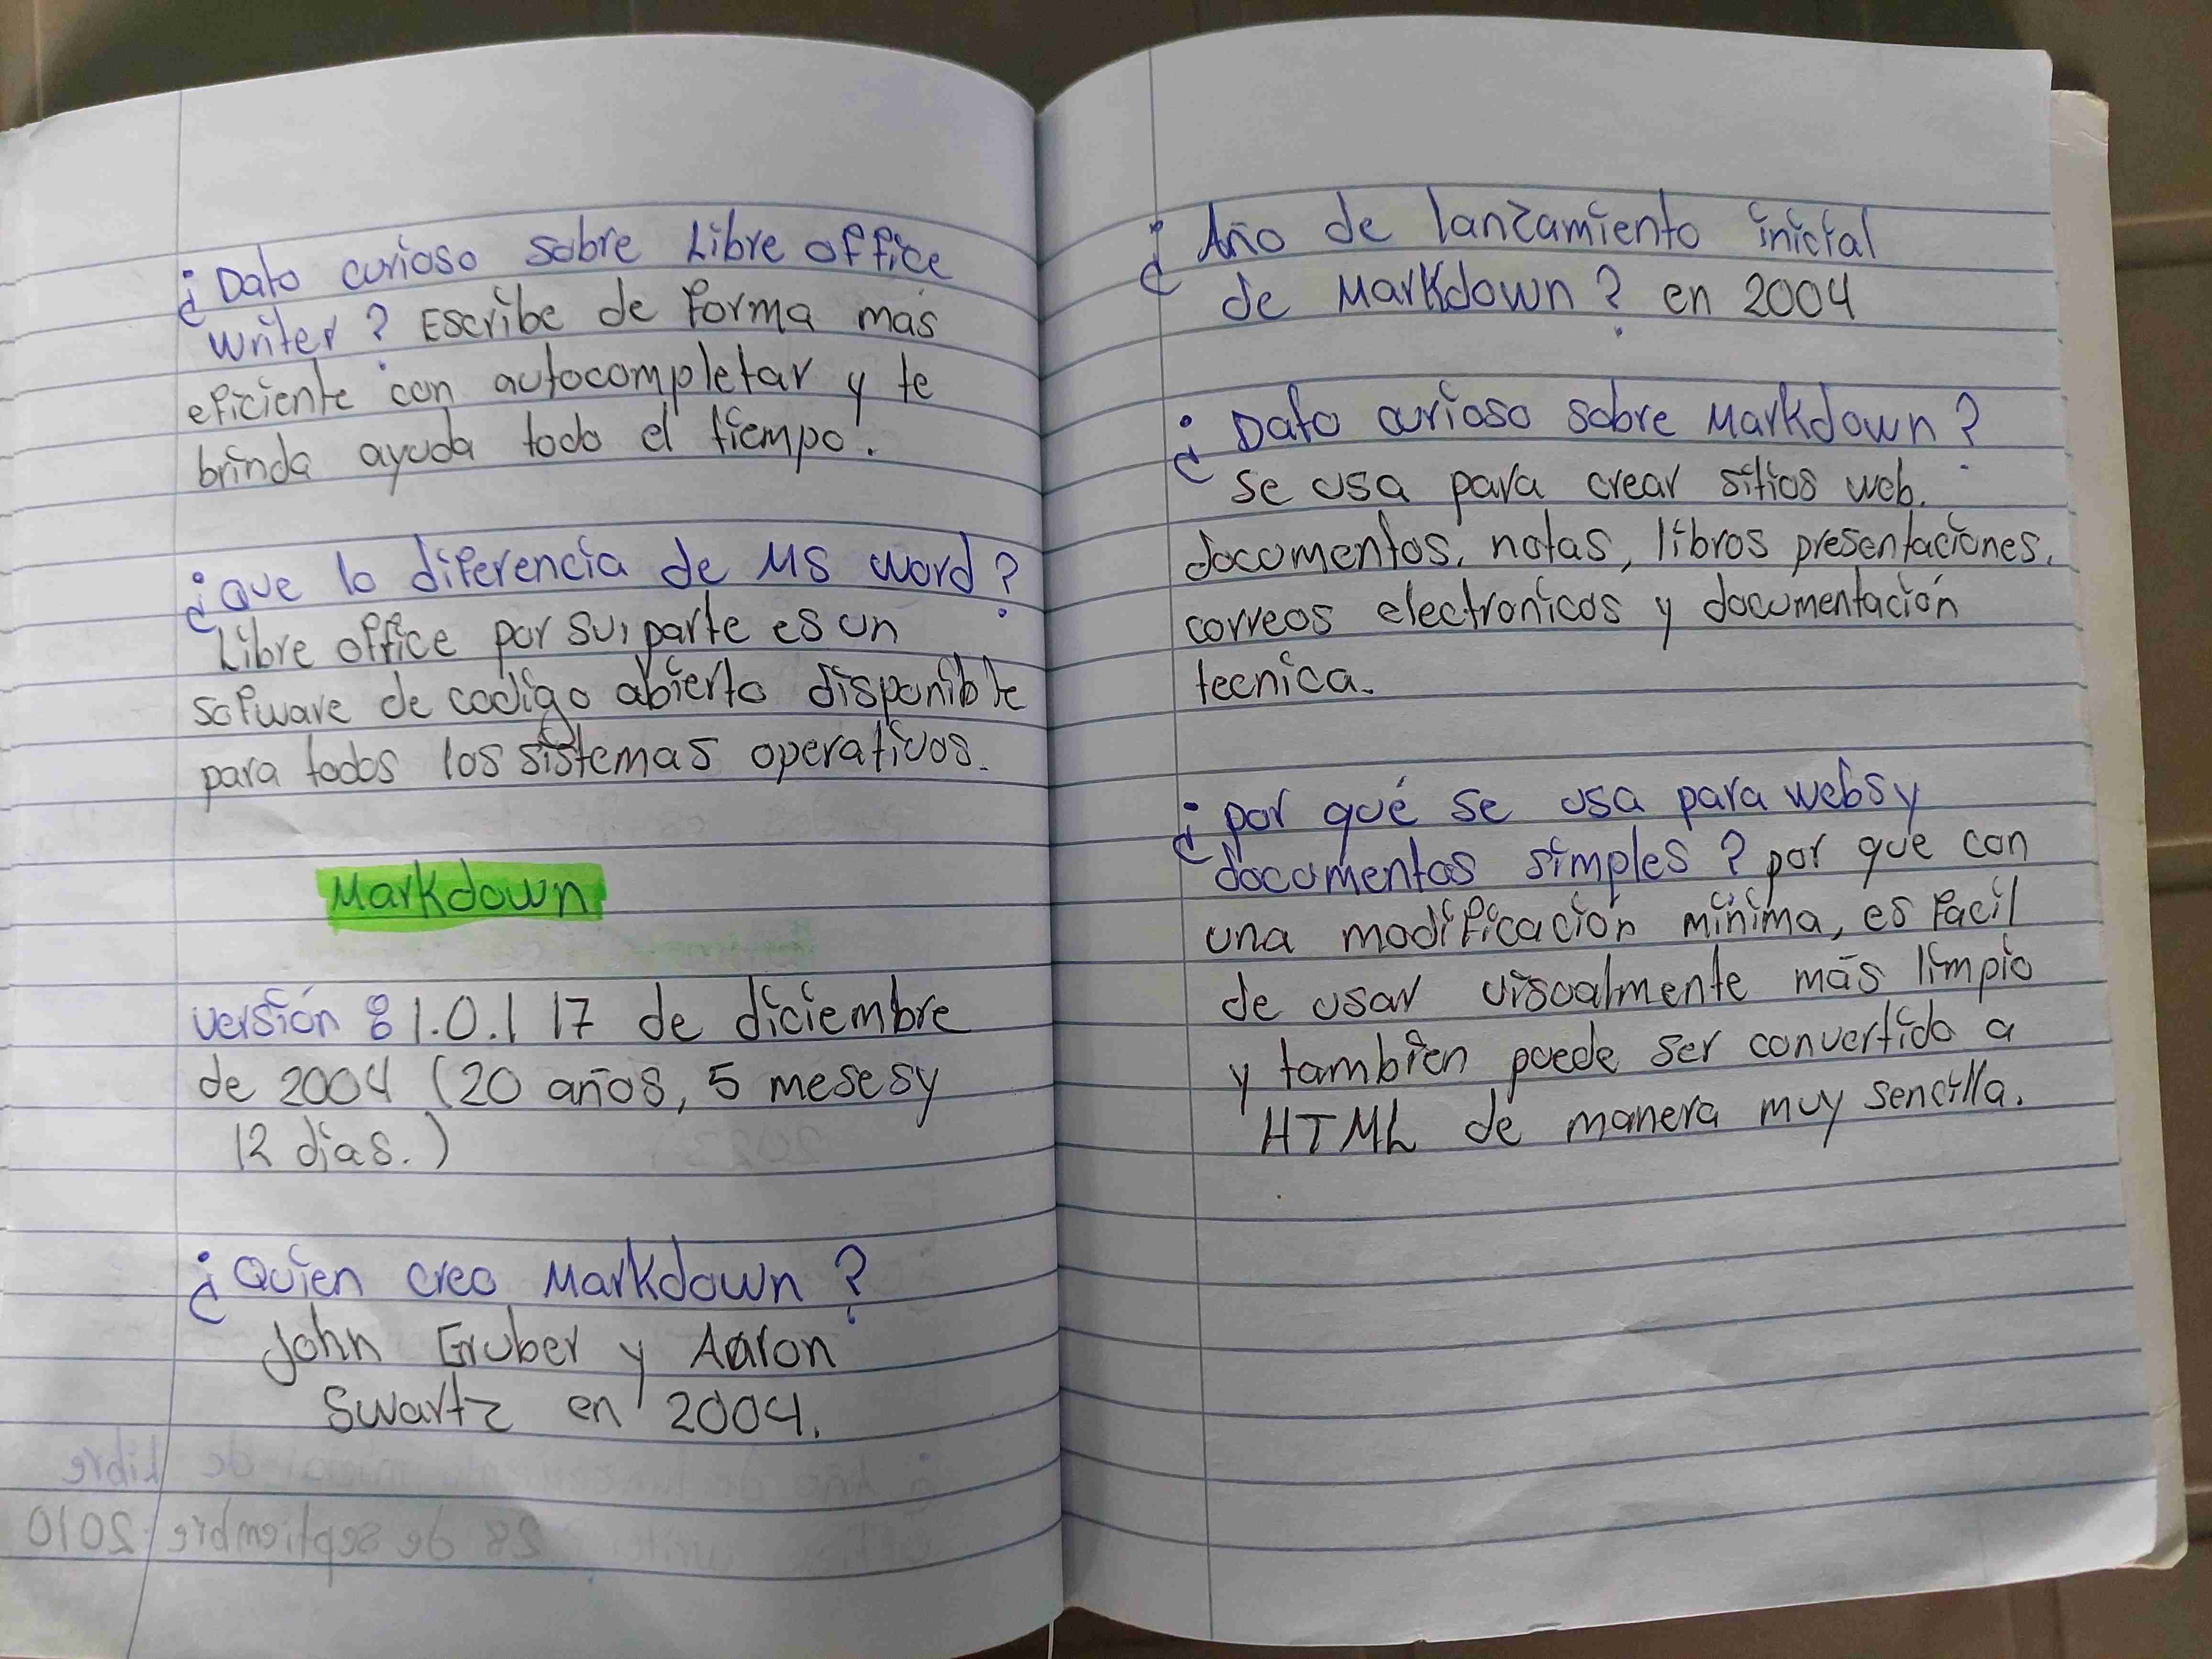 ¿Dato curioso sobre Libre office
writer? Escribe de forma más
eficiente con autocompletar y te
brinda ayuda todo el tiempo.
¿que lo diferencia de MS word?
Libre office por su parte es un
sofware de codigo abierto disponible
para todos los sistemas operativos.
Markdown
versión : 1.0.1 17 de diciembre
de 2004 (20 años, 5 meses y
12 días.)
¿Quien creo Markdown?
John Gruber y Aaron
Swartz en 2004.
¿Año de lanzamiento inicial
de Markdown? en 2004
¿Dato curioso sobre Markdown?
se usa para crear sitios web.
documentos, notas, libros presentaciones,
correos electronicos y documentación
tecnica.
¿por qué se usa para webs y
documentos simples? por que con
una modificación mínima, es facil
de usar visualmente más limpio
y tambien puede ser convertido a
HTML de manera muy sencilla.